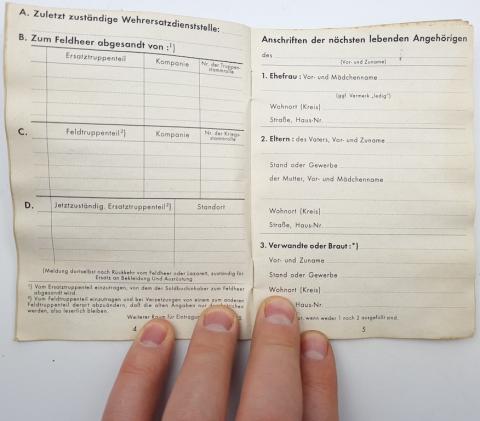 A. Zuletzt zuständige Wehrersatzdienststelle:
B. Zum Feldheer abgesandt von :¹)
Ersatztruppenteil
Kompanie
Nr. der Truppen-
stammrolle
C.
Feldtruppenteil²)
Kompanie
Nr. der Kriegs-
stammrolle
D.
Jetztzuständig. Ersatztruppenteil²)
Standort
(Meldung dortselbst nach Rückkehr vom Feldheer oder Lazarett, zuständig für
Ersatz an Bekleidung und Ausrüstung
¹) Vom Ersatztruppenteil einzutragen, von dem der Soldbuchinhaber zum Feldheer
abgesandt wird.
²) Vom Feldtruppenteil einzutragen und bei Versetzungen von einem zum anderen
Feldtruppenteil derart abzuändern, daß die alten Angaben nur durchstrichen
werden, also leserlich bleiben.
Weiterer Raum für Eintragungen
4
Anschriften der nächsten lebenden Angehörigen
des
(Vor- und Zuname)
1. Ehefrau: Vor- und Mädchenname
(ggf. Vermerk „ledig")
Wohnort (Kreis)
Straße, Haus-Nr.
2. Eltern: des Vaters, Vor- und Zuname
Stand oder Gewerbe
der Mutter, Vor- und Mädchenname
Wohnort (Kreis)
Straße, Haus-Nr.
3. Verwandte oder Braut:*)
Vor- und Zuname
Stand oder Gewerbe
Wohnort (Kreis)
Haus-Nr.
nur, wenn weder 1 noch 2 ausgefüllt sind.
5